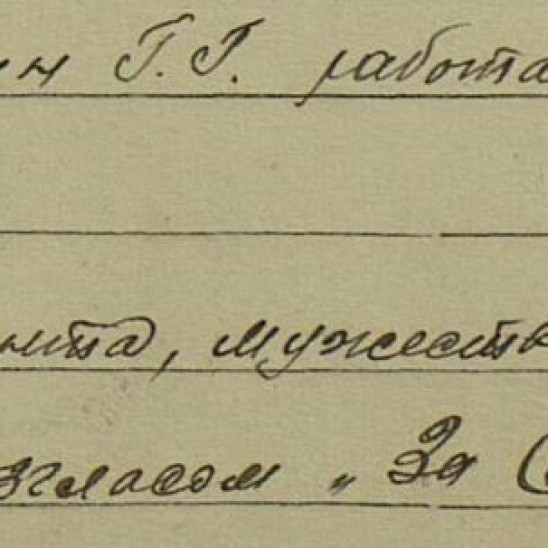 ин Г.Г. работа
мужеств
згласом „За